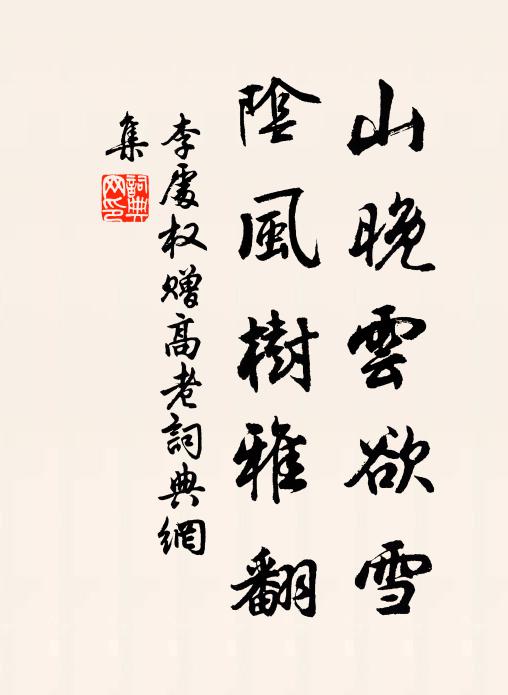 山晚雲欲雪
陰風樹雅翻
李處权赠高老詞典網
集
詞典
网印